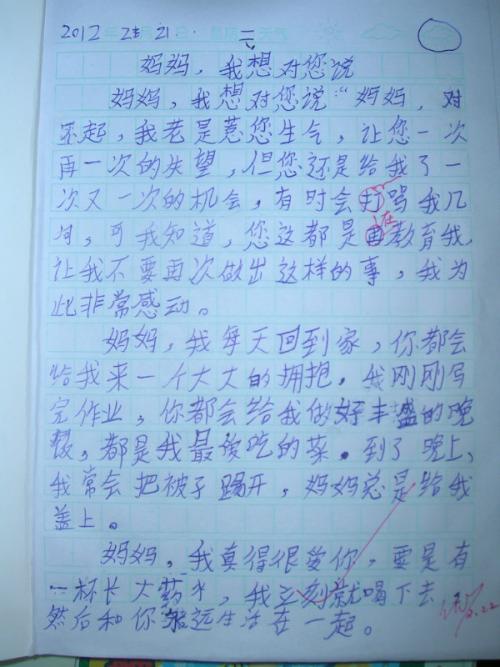 2012年2月21日 星期二 天气
妈妈，我想对您说
妈妈，我想对您说“妈妈，对
不起，我老是惹您生气，让您一次
再一次的失望，但您还是给我了一
次又一次的机会，有时会打骂我几
句，可我知道，您这都是在教育我，
让我不要再次做出这样的事，我为
此非常感动。
妈妈，我每天回到家，你都会
给我来一个大大的拥抱，我刚刚写
完作业，你都会给我做好丰盛的晚
饭，都是我最爱吃的菜。到了晚上，
我常会把被子踢开，妈妈总是给我
盖上。
妈妈，我真得很爱你，要是有
一杯长大药水，我立刻就喝下去，
然后和你永远生活在一起。
2.22